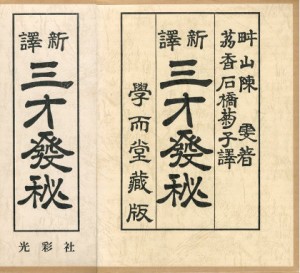 畊山陳雯著
荔香石橋菊子譯
新譯
三才發秘
學而堂藏版
新譯
三才發秘
光彩社